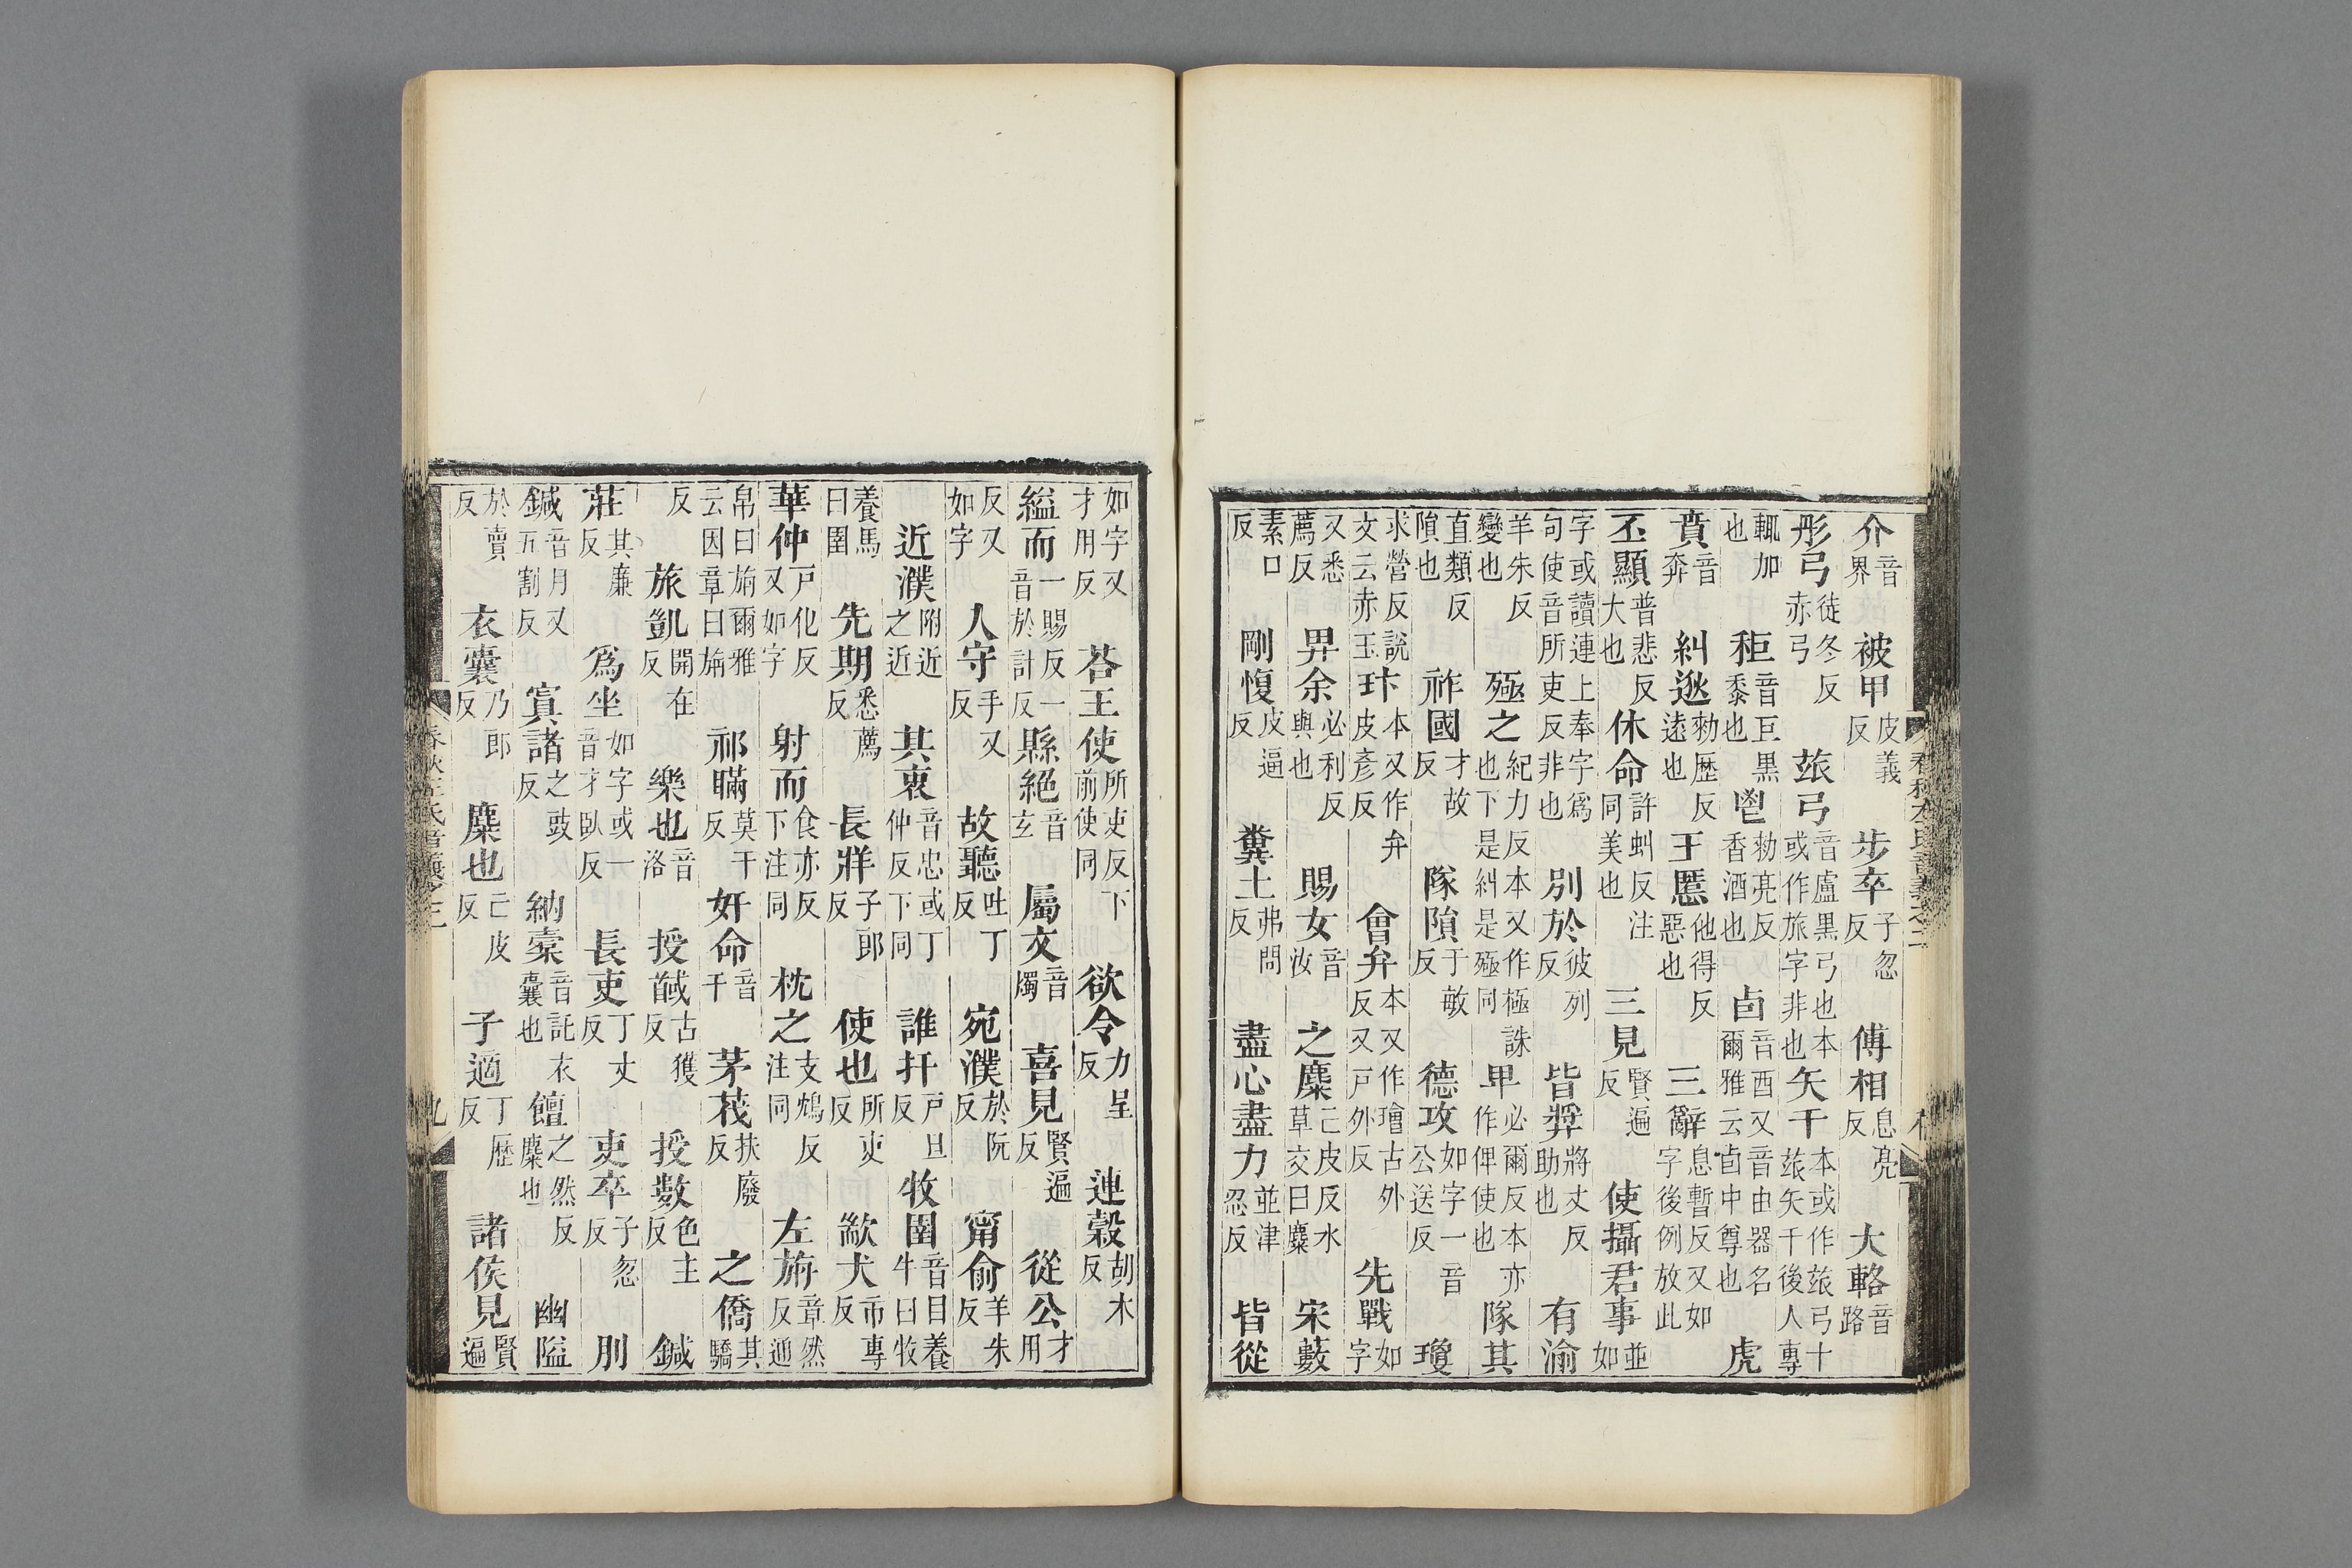 介音界被甲皮義反步卒子忽反傅相息亮反大輅音路
彤弓徒冬反赤弓玈弓音盧黑弓也本或作旅字非也矢千本或作玈弓十玈矢千後人專
輒加也秬音巨黑黍也鬯勑亮反香酒也卣音酉又音由器名爾雅云卣中尊也虎
賁音奔糾逖勑歷反遠也王慝他得反惡也三辭息暫反又如字後例放此
丕顯普悲反大也休命許虯反注同美也三見賢遍反使攝君事並如
字或讀連上奉字爲句使音所吏反非也別於彼列反皆奬將丈反助也有渝
羊朱反變也殛之紀力反本又作極誅也下是糾是殛同卑必爾反本亦作俾使也隊其
直類反隕也祚國才故反隊隕于敏反德攻如字一音公送反瓊
求營反說文云赤玉玤本又作弁皮彥反會弁本又作璯古外反又戸外反先戰如字
又悉薦反畀余必利反與也賜女音汝之麋亡皮反水草交曰麋宋藪
素口反剛愎皮逼反糞土弗問反盡心盡力並津忍反皆從
如字又才用反荅王使所吏反下前使同欲令力呈反連穀胡木反
縊而一賜反一音於計反縣絕音玄屬文音燭喜見賢遍反從公才用
反又如字人守手又反故聽吐丁反宛濮於阮反甯俞羊朱反
近濮附近之近其衷音忠或丁仲反下下同誰扞戸旦反牧圉音目養牛曰牧
養馬曰圉先期悉薦反長牂子郎反使也所吏反歂犬市專反
華仲戸化反又如字射而食亦反下注同枕之支鴆反注同左旃章然反通
帛曰旃爾雅云因章曰旃祁瞞莫干反奸命音干茅茷扶廢反之僑其驕
反旅凱開在反樂也音洛授馘古獲反授數色主反鍼
莊其廉反爲坐如字或一音才臥反長吏丁丈反吏卒子忽反刖
鍼音月又五割反寘諸之豉反納橐音託衣囊也饘之然反麋也幽隘
於賣反衣囊乃郎反麋也亡皮反子適丁歷反諸侯見賢遍